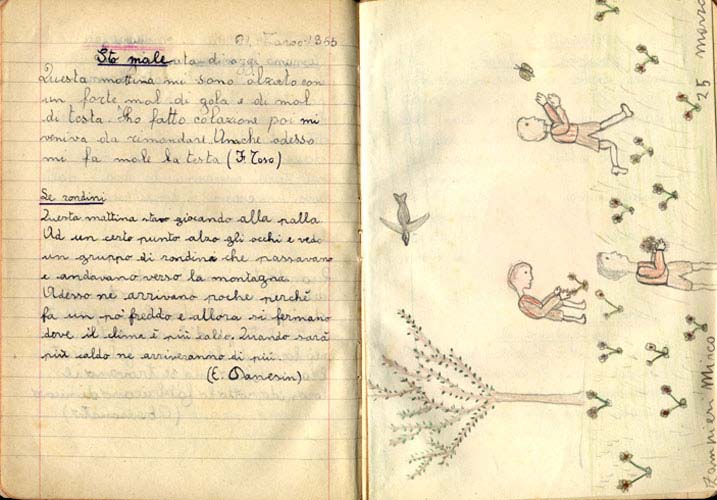 Marzo 1955
Sto male
Questa mattina mi sono alzato con
un forte mal di gola e di mal
di testa. Ho fatto colazione poi mi
veniva da rimandare. Anache adesso
mi fa male la testa (F. Toso)
Le rondini
Questa mattina stavo giocando alla palla
Ad un certo punto alzo gli occhi e vedo
un gruppo di rondina che passavano
e andavano verso la montagna.
Adesso ne arrivano poche perchè
fa un po' freddo e allora si fermano
dove il clima è più caldo. Quando sarà
più caldo ne arriveranno di più.
(E. Danesin)
25 marzo
Zampieri Mirco